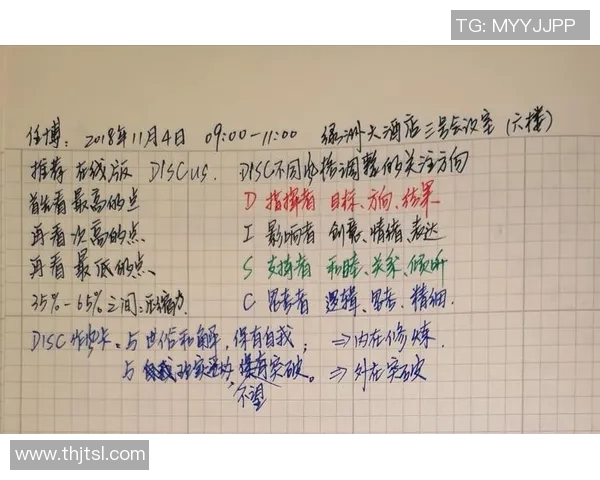 TG: MYYJJPP
任博: 2018年11月4日 09:00-11:00 绿洲大酒店三号会议室 (六楼)
推荐 在线版 DISCus. DISC不同风格调整的关注方向
首先看最高的点 D 指挥者 目标、方向、结果
再看次高的点、 I 影响者 创意、情绪、表达
再看最低的点、 S 支持者 和睦、关系、倾听
35%-65%之间: 压缩 C 思考者 逻辑、思考、精细.
DISC 与世俗和解, 保有自我; ⇒内在修炼
与 突破。 ⇒外在突破
不望
www.thjtsl.com